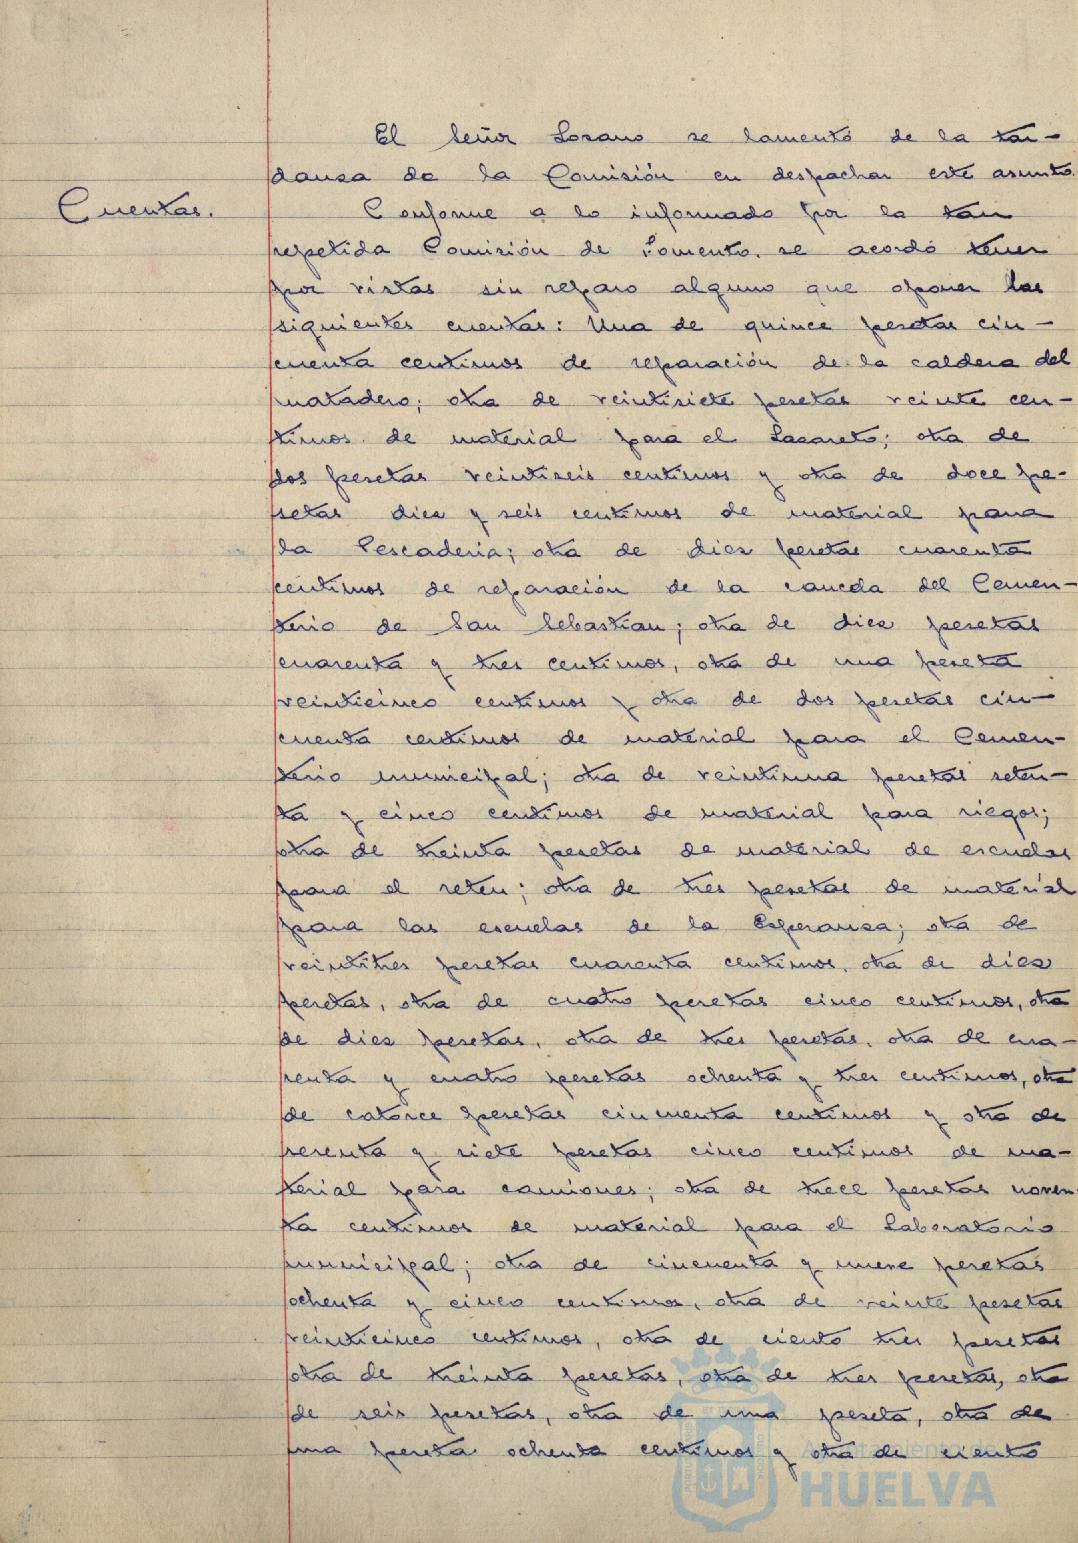 El Señor Lozano se lamentó de la tar-
danza de la Comisión en despachar este asunto.
Cuentas.
Conforme a lo informado por la tan
repetida Comisión de Fomento, se acordó tener
por vistas sin reparo alguno que oponer las
siguientes cuentas: Una de quince pesetas cin-
cuenta centimos de reparación de la caldera del
matadero; otra de veintisiete pesetas veinte cen-
timos de material para el Lazareto; otra de
dos pesetas veintiseis centimos y otra de doce pe-
setas diez y seis centimos de material para
la Pescaderia; otra de diez pesetas cuarenta
centimos de reparación de la caneda del Cemen-
terio de San Sebastian; otra de diez pesetas
cuarenta y tres centimos, otra de una peseta
veinticinco centimos y otra de dos pesetas cin-
cuenta centimos de material para el Cemen-
terio municipal; otra de veintiuna pesetas seten-
ta y cinco centimos de material para riegos;
otra de treinta pesetas de material de escuelas
para el reten; otra de tres pesetas de material
para las escuelas de la Esperanza; otra de
veintitres pesetas cuarenta centimos, otra de diez
pesetas, otra de cuatro pesetas cinco centimos, otra
de diez pesetas, otra de tres pesetas, otra de cua-
renta y cuatro pesetas ochenta y tres centimos, otra
de catorce pesetas cincuenta centimos y otra de
sesenta y siete pesetas cinco centimos de ma-
terial para camiones; otra de trece pesetas noven-
ta centimos de material para el Laboratorio
municipal; otra de cincuenta y nueve pesetas
ochenta y cinco centimos, otra de veinte pesetas
veinticinco centimos, otra de ciento tres pesetas
otra de treinta pesetas, otra de tres pesetas, otra
de seis pesetas, otra de una peseta, otra de
una peseta ochenta centimos y otra de ciento
Ayuntamiento de
HUELVA